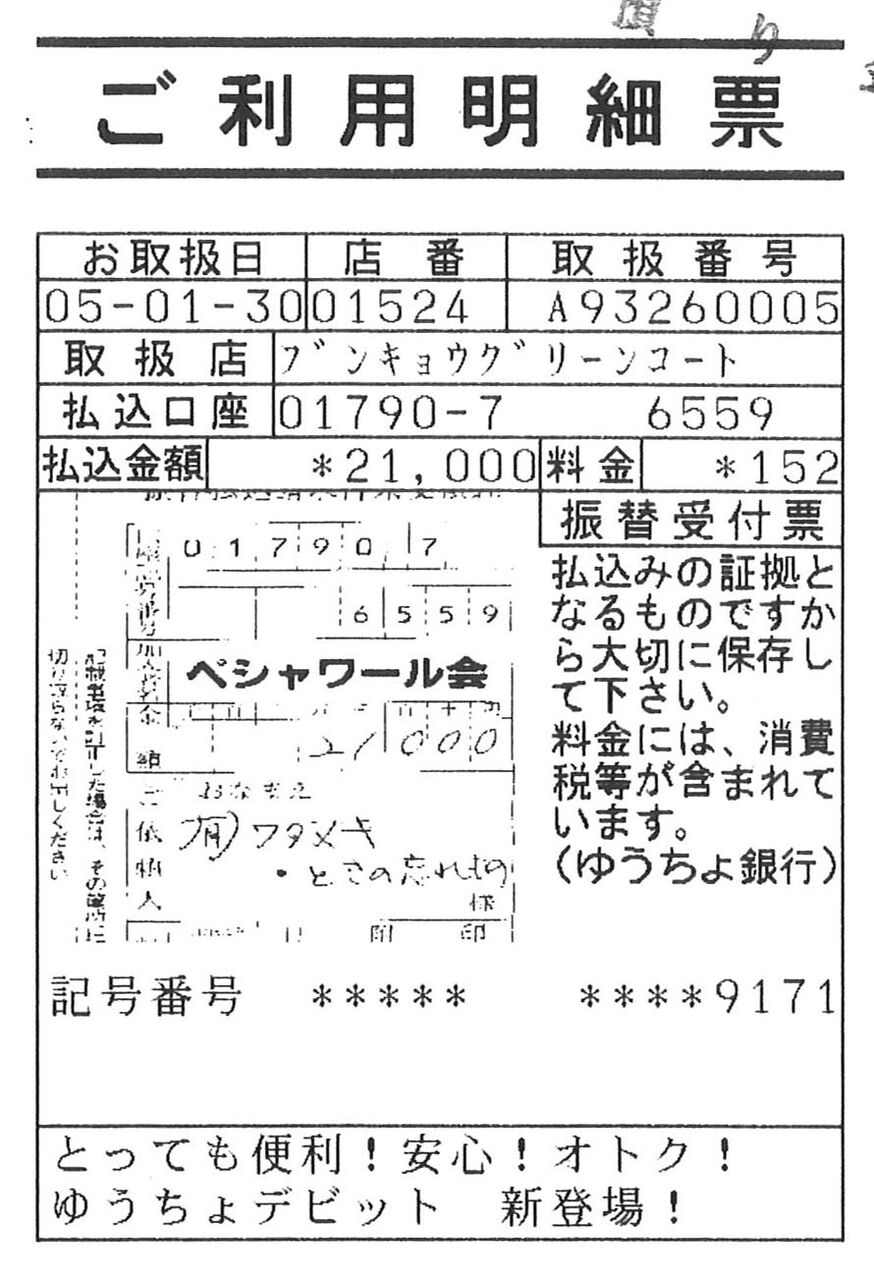 預り
ご利用明細票
お取扱日 店番 取扱番号
05-01-30 01524 A93260005
取扱店 ブンキョウグリーンコート
払込口座 01790-7 6559
払込金額 *21,000 料金 *152
振替受付票
払込みの証拠と
なるものですか
ら大切に保存し
て下さい。
料金には、消費
税等が含まれて
います。
(ゆうちょ銀行)
口座番号 01790 7
6559
加入者名 ペシャワール会
金額 21000
おなまえ
ご依頼人 (有)ワタメキ
・とての忘れもの
様
附 印
記載事項を訂正した場合は、その箇所に
切り取らないでお出しください
記号番号 ***** ****9171
とっても便利!安心!オトク!
ゆうちょデビット 新登場!